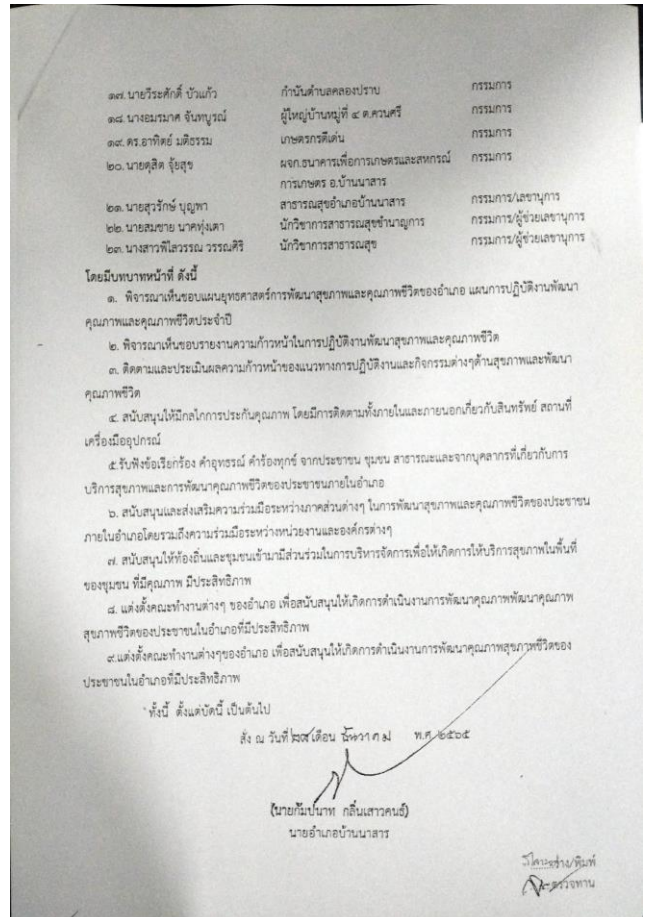 ๑๗. นายวีระศักดิ์ บัวแก้ว กำนันตำบลคลองปราบ กรรมการ
๑๘. นางอมรมาศ จันทบูรณ์ ผู้ใหญ่บ้านหมู่ที่ ๔ ต.ควนศรี กรรมการ
๑๙. ดร.อาทิตย์ มติธรรม เกษตรกรดีเด่น กรรมการ
๒๐. นายดุสิต จุ้ยสุข ผจก.ธนาคารเพื่อการเกษตรและสหกรณ์ กรรมการ
การเกษตร อ.บ้านนาสาร
๒๑. นายสุวรักษ์ บุญพา สาธารณสุขอำเภอบ้านนาสาร กรรมการ/เลขานุการ
๒๒. นายสมชาย นาคทุ่งเตา นักวิชาการสาธารณสุขชำนาญการ กรรมการ/ผู้ช่วยเลขานุการ
๒๓. นางสาวพิไลวรรณ วรรณศิริ นักวิชาการสาธารณสุข กรรมการ/ผู้ช่วยเลขานุการ
โดยมีบทบาทหน้าที่ ดังนี้
๑. พิจารณาเห็นชอบแผนยุทธศาสตร์การพัฒนาสุขภาพและคุณภาพชีวิตของอำเภอ แผนการปฏิบัติงานพัฒนา
คุณภาพและคุณภาพชีวิตประจำปี
๒. พิจารณาเห็นชอบรายงานความก้าวหน้าในการปฏิบัติงานพัฒนาสุขภาพและคุณภาพชีวิต
๓. ติดตามและประเมินผลความก้าวหน้าของแนวทางการปฏิบัติงานและกิจกรรมต่างๆด้านสุขภาพและพัฒนา
คุณภาพชีวิต
๔. สนับสนุนให้มีกลไกการประกันคุณภาพ โดยมีการติดตามทั้งภายในและภายนอกเกี่ยวกับสินทรัพย์ สถานที่
เครื่องมืออุปกรณ์
๕.รับฟังข้อเรียกร้อง คำอุทธรณ์ คำร้องทุกข์ จากประชาชน ชุมชน สาธารณะและจากบุคลากรที่เกี่ยวกับการ
บริการสุขภาพและการพัฒนาคุณภาพชีวิตของประชาชนภายในอำเภอ
๖. สนับสนุนและส่งเสริมความร่วมมือระหว่างภาคส่วนต่างๆ ในการพัฒนาสุขภาพและคุณภาพชีวิตของประชาชน
ภายในอำเภอโดยรวมถึงความร่วมมือระหว่างหน่วยงานและองค์กรต่างๆ
๗. สนับสนุนให้ท้องถิ่นและชุมชนเข้ามามีส่วนร่วมในการบริหารจัดการเพื่อให้เกิดการให้บริการสุขภาพในพื้นที่
ของชุมชน ที่มีคุณภาพ มีประสิทธิภาพ
๘. แต่งตั้งคณะทำงานต่างๆ ของอำเภอ เพื่อสนับสนุนให้เกิดการดำเนินงานการพัฒนาคุณภาพพัฒนาคุณภาพ
สุขภาพชีวิตของประชาชนในอำเภอที่มีประสิทธิภาพ
๙.แต่งตั้งคณะทำงานต่างๆของอำเภอ เพื่อสนับสนุนให้เกิดการดำเนินงานการพัฒนาคุณภาพสุขภาพชีวิตของ
ประชาชนในอำเภอที่มีประสิทธิภาพ
ทั้งนี้ ตั้งแต่บัดนี้ เป็นต้นไป
สั่ง ณ วันที่ เดือน ธันวาคม พ.ศ. ๒๕๖๕
(นายกัมปนาท กลิ่นเสาวคนธ์)
นายอำเภอบ้านนาสาร
ร่าง/พิมพ์
ตรวจทาน